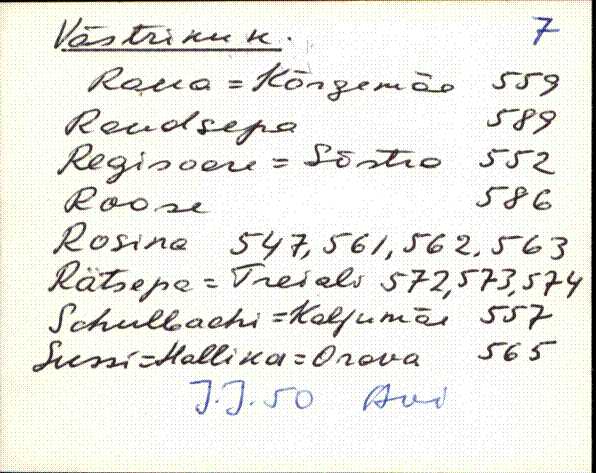 Västriku k. 7
Raua = Kõrgemäe 559
Raudsepa 589
Regisaare = Sõstra 552
Roose 586
Rosina 547, 561, 562, 563
Rätsepa = Treiali 572, 573, 574
Schulbachi = Kaljumäe 557
Sussi = Hallika = Orava 565
J.J. 50 Avi